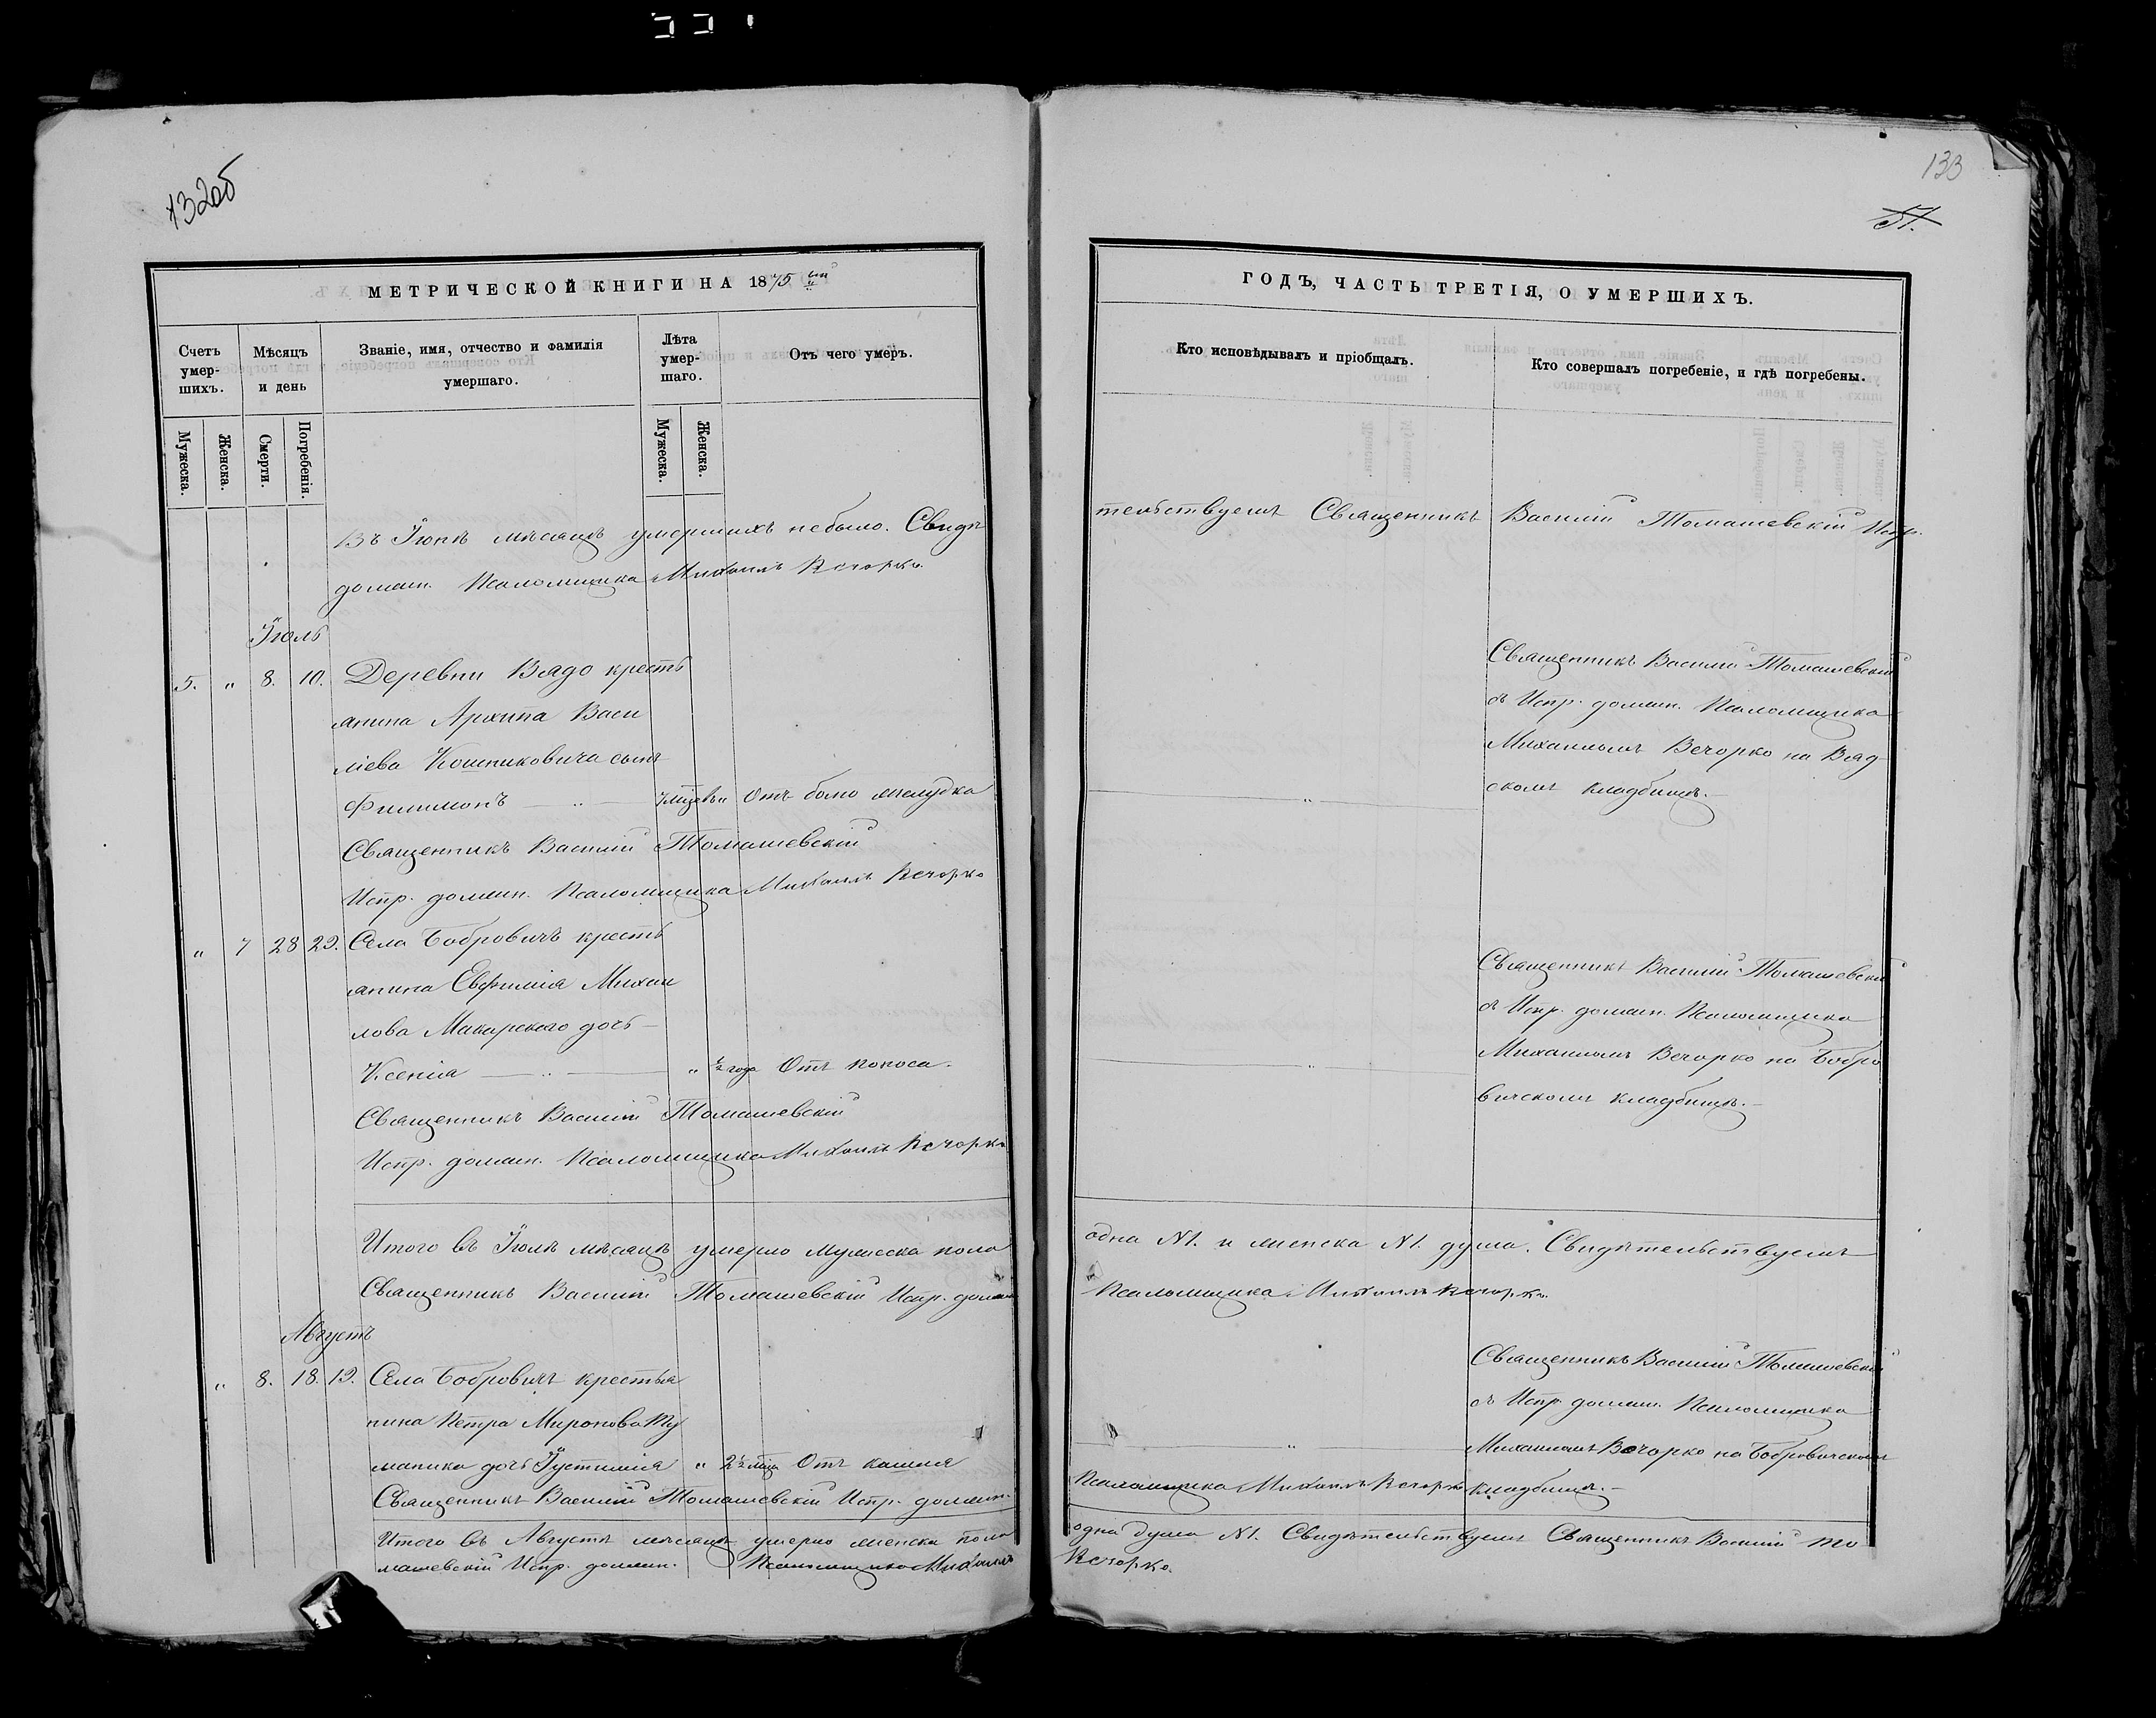 132об
МЕТРИЧЕСКОЙ КНИГИ НА 1875 ый
Счетъ умер-шихъ.
Мѣсяцъ и день
Званіе, имя, отчество и фамилія умершаго.
Лѣта умер-шаго.
Отъ чего умеръ.
Мужеска.
Женска.
Смерти.
Погребенія.
Мужеска.
Женска.
Въ Іюнѣ мѣсяцѣ умершихъ небыло. Свидѣ
должн. Псаломщика Михаилъ Вечорко.
Іюль
5. " 8. 10. Деревни Вядо кресть
янина Архипа Васи
ліева Кошниковича сынъ
Филимонъ — " — Отъ боли желудка
Священникъ Василій Томашевскій
Испр. должн. Псаломщика Михаилъ Вечорко
" 7 28 29. Села Бобровичъ кресть
янина Евфимія Михаи
лова Макарского дочь —
Ксенія — " — " ½ года Отъ поноса.
Священникъ Василій Томашевскій
Испр. должн. Псаломщика Михаилъ Вечорко
Итого въ Іюлѣ мѣсяцѣ умерло Мужеска пола
Священникъ Василій Томашевскій Испр. должн
Августъ
" 8. 18. 19. Села Бобровичъ крестья
нина Петра Миронова
дочь Іустинія " 2½ мца Отъ кашля
Священникъ Василій Томашевскій Испр. должн.
Итого въ Августѣ мѣсяцѣ умерло женска пола
машевскій Испр. должн. Псаломщика Михаилъ
133
51.
ГОДЪ, ЧАСТЬ ТРЕТІЯ, О УМЕРШИХЪ.
Кто исповѣдывалъ и пріобщалъ.
Кто совершалъ погребеніе, и гдѣ погребены.
тельствуемъ Священникъ Василій Томашевскій Испр.
Священникъ Василій Томашевскій
съ Испр. должн. Псаломщика
Михаиломъ Вечорко на Вяд
"
скомъ кладбищѣ. —
Священникъ Василій Томашевскій
съ Испр. должн. Псаломщика
Михаиломъ Вечорко на Бобро
"
вичскомъ кладбищѣ. —
одна N1. и женска N1. душа. Свидѣтельствуемъ
Псаломщика Михаилъ Вечорко.
Священникъ Василій Томашевскій
съ Испр. должн. Псаломщика
" Михаиломъ Вечорко на Бобровичскомъ
Псаломщика Михаилъ Вечорко кладбищѣ. —
одна душа N1. Свидѣтельствуемъ Священникъ Василій То
Вечорко.